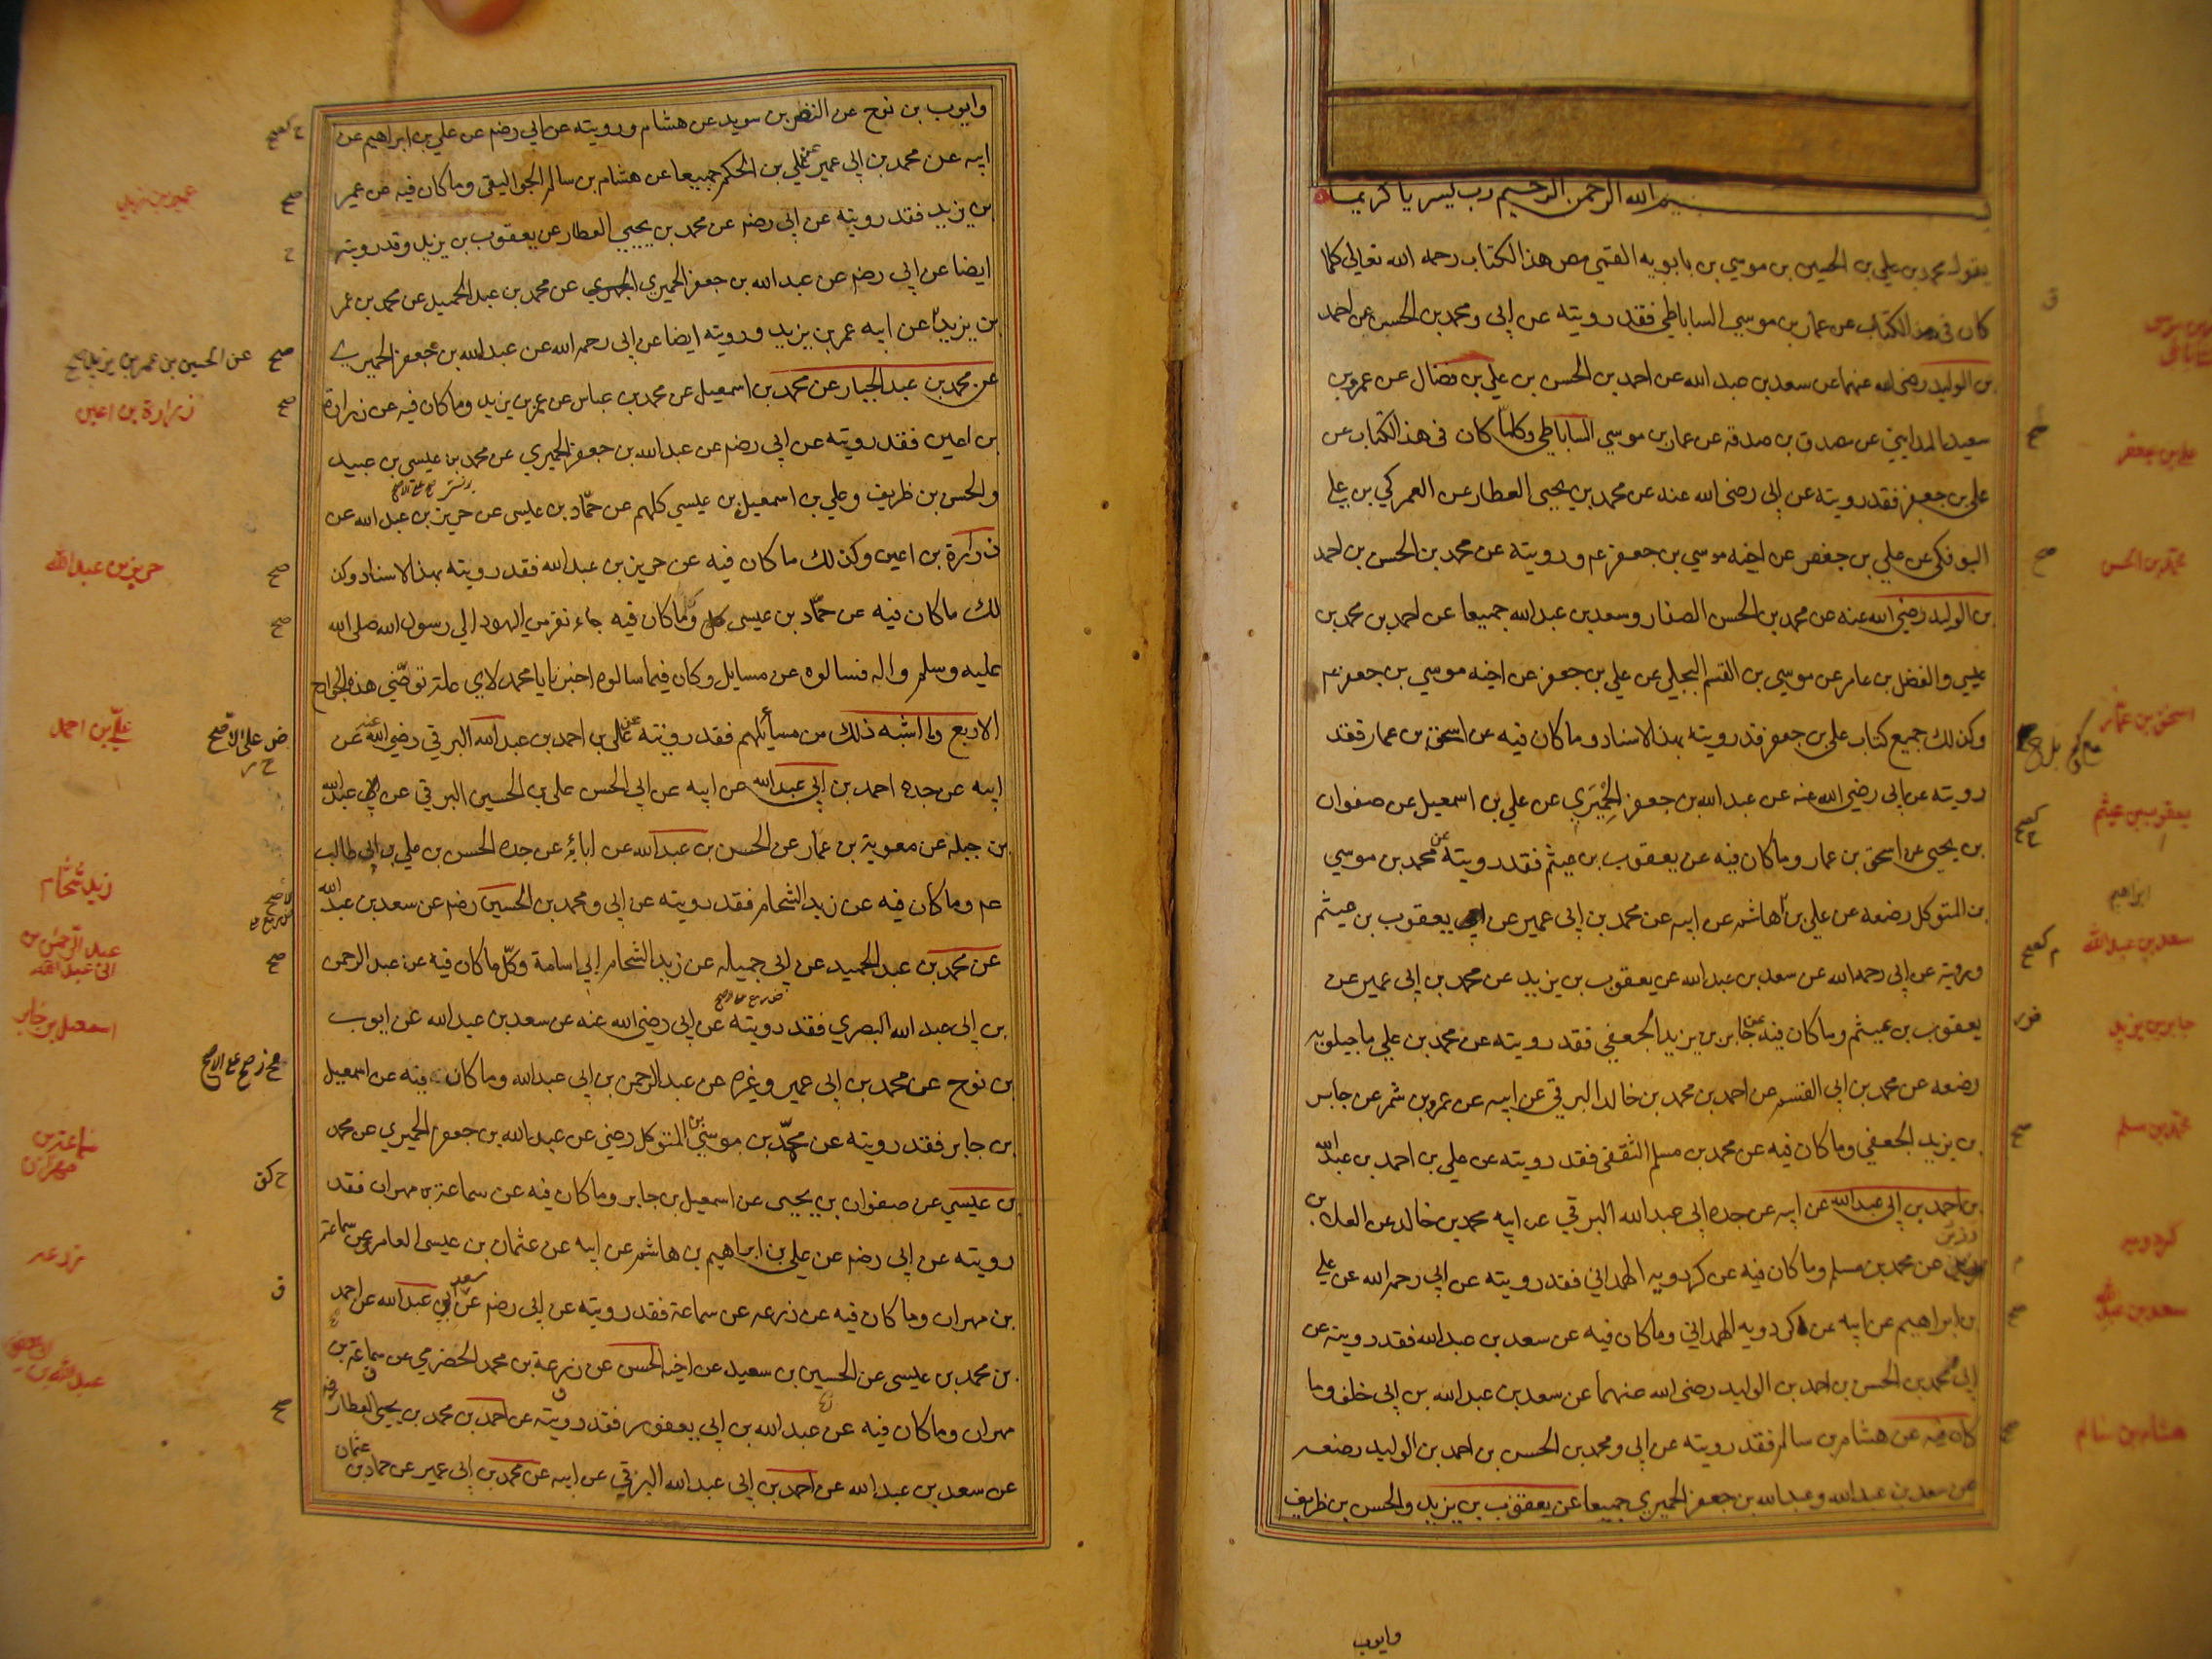 بسم الله الرحمن الرحيم رب يسر يا كريم
يقول محمد بن علي بن الحسين بن موسي بن بابويه القمي مص هذا الكتاب رحمه الله تعالى كلما
كان في هذا الكتاب عن عمار بن موسي الساباطي فقد رويته عن ابي ومحمد بن الحسن بن احمد
بن الوليد رضي الله عنهما عن سعد بن عبد الله عن احمد بن الحسن بن علي بن فضال عن عمرو بن
سعيد المدايني عن مصدق بن صدقه عن عمار بن موسي الساباطي وكلما كان في هذا الكتاب عن
علي بن جعفر فقد رويته عن ابي رضى الله عنه عن محمد بن يحيى العطار عن العمركي بن علي
البوفكي عن علي بن جعفر عن اخيه موسي بن جعفر عم ورويته عن محمد بن الحسن بن احمد
بن الوليد رضي الله عنه عن محمد بن الحسن الصفار وسعد بن عبد الله جميعا عن احمد بن محمد بن
عيسي والفضل بن عامر عن موسي بن القسم البجلي عن علي بن جعفر عن اخيه موسي بن جعفر عم
وكذلك جميع كتاب علي بن جعفر قد رويته بهذا الاسناد وما كان فيه عن اسحق بن عمار فقد
رويته عن ابي رضي الله عنه عن عبد الله بن جعفر الحميري عن علي بن اسمعيل عن صفوان
بن يحيى عن اسحق بن عمار وما كان فيه عن يعقوب بن عيثم فقد رويته عن محمد بن موسي
بن المتوكل رضعه عن علي بن هاشم عن ابيه عن محمد بن ابي عمير عن يعقوب بن عيثم
ورويته عن ابي رحمه الله عن سعد بن عبد الله عن يعقوب بن يزيد عن محمد بن ابي عمير عن
يعقوب بن عيثم وما كان فيه عن جابر بن يزيد الجعفي فقد رويته عن محمد بن علي ماجيلويه
رضعه عن محمد بن ابي القسم عن احمد بن محمد بن خالد البرقي عن ابيه عن عمرو بن شمر عن جابر
بن يزيد الجعفي وما كان فيه عن محمد بن مسلم الثقفي فقد رويته عن علي بن احمد بن عبد الله
بن احمد بن ابي عبد الله عن ابيه عن جده ابي عبد الله البرقي عن ابيه محمد بن خالد عن العلاء بن
عن محمد بن مسلم وما كان فيه عن كردويه الهمداني فقد رويته عن ابي رحمه الله عن علي
بن ابراهيم عن ابيه عن كردويه الهمداني وما كان فيه عن سعد بن عبد الله فقد رويته عن
ابي محمد بن الحسن بن احمد بن الوليد رضي الله عنهما عن سعد بن عبد الله بن ابي خلف وما
كان فيه عن هشام بن سالم فقد رويته عن ابي ومحمد بن الحسن بن احمد بن الوليد رضعه
عن سعد بن عبد الله وعبد الله بن جعفر الحميري جميعا عن يعقوب بن يزيد والحسن بن ظريف
وايوب
علي بن جعفر
محمد بن الحسن
اسحق بن عمار
يعقوب بن عيثم
ابراهيم
سعد بن عبد الله
جابر بن يزيد
محمد بن مسلم
كردويه
سعد بن عبد الله
هشام بن سالم
وايوب بن نوح عن النظر بن سويد عن هشام ورويته عن ابي رضم عن علي بن ابراهيم عن
ابيه عن محمد بن ابي عمير عن علي بن الحكم جميعا عن هشام بن سالم الجواليقي وما كان فيه عن عمر
بن يزيد فقد رويته عن ابي رضه عن محمد بن يحيي العطار عن يعقوب بن يزيد وقد رويته
ايضا عن ابي رضم عن عبد الله بن جعفر الحميري عن محمد بن عبد الحميد عن محمد بن عمر
بن يزيد عن ابيه عمر بن يزيد ورويته ايضا عن ابي رحمه الله عن عبد الله بن جعفر الحميري
عن محمد بن عبد الجبار عن محمد بن اسمعيل عن محمد بن عباس عن عمر بن يزيد وما كان فيه عن زرارة
بن اعين فقد رويته عن ابي رضم عن عبد الله بن جعفر الحميري عن محمد بن عيسى بن عبيد
والحسن بن ظريف وعلي بن اسمعيل بن عيسي كلهم عن حماد بن عيسى عن حريز بن عبد الله عن
زرارة بن اعين وكذلك ما كان فيه عن حريز بن عبد الله فقد رويته بهذا الاسناد وكذ
لك ما كان فيه عن حماد بن عيسى وما كان فيه جاء نفر من اليهود الي رسول الله صلى الله
عليه وسلم واله فسالوه عن مسايل وكان فيما سالوه اخبرنا يا محمد لاي علة توضئ هذه الجوارح
الاربع وما اشبه ذلك من مسائلهم فقد رويته عن علي بن احمد بن عبد الله البرقي رضي الله عنه عن
ابيه عن جده احمد بن ابي عبد الله عن ابيه عن ابي الحسن علي بن الحسين البرقي عن عبد الله
بن جبلة عن معوية بن عمار عن الحسن بن عبد الله عن ابائه عن جده الحسن بن علي بن ابي طالب
عم وما كان فيه عن زيد الشحام فقد رويته عن ابي ومحمد بن الحسين رضم عن سعد بن عبد الله
عن محمد بن عبد الحميد عن ابي جميله عن زيد الشحام ابي اسامة وكل ما كان فيه عن عبد الرحمن
بن ابي عبد الله البصري فقد رويته عن ابي رضي الله عنه عن سعد بن عبد الله عن ايوب
بن نوح عن محمد بن ابي عمير وغيره عن عبد الرحمن بن ابي عبد الله وما كان فيه عن اسمعيل
بن جابر فقد رويته عن محمد بن موسي بن المتوكل رضي عن عبد الله بن جعفر الحميري عن محمد
بن عيسي عن صفوان بن يحيى عن اسمعيل بن جابر وما كان فيه عن سماعة بن مهران فقد
رويته عن ابي رضم عن علي بن ابراهيم بن هاشم عن ابيه عن عثمان بن عيسى العامري عن سماعة
بن مهران وما كان فيه عن زرعه عن سماعة فقد رويته عن ابي رضم عن سعد بن عبد الله عن احمد
بن محمد بن عيسى عن الحسين بن سعيد عن اخيه الحسن عن زرعة بن محمد الحضرمي عن سماعة بن
مهران وما كان فيه عن عبد الله بن ابي يعفور فقد رويته عن احمد بن محمد بن يحيى العطار
عن سعد بن عبد الله عن احمد بن ابي عبد الله البرقي عن ابيه عن محمد بن ابي عمير عن حماد بن عثمان
عن الحسين بن عمر بن يزيد صح
زرارة بن اعين
حريز بن عبد الله
علي بن احمد
زيد شحام
عبد الرحمن بن
ابي عبد الله
اسمعيل بن جابر
سماعة بن
مهران
زرعه